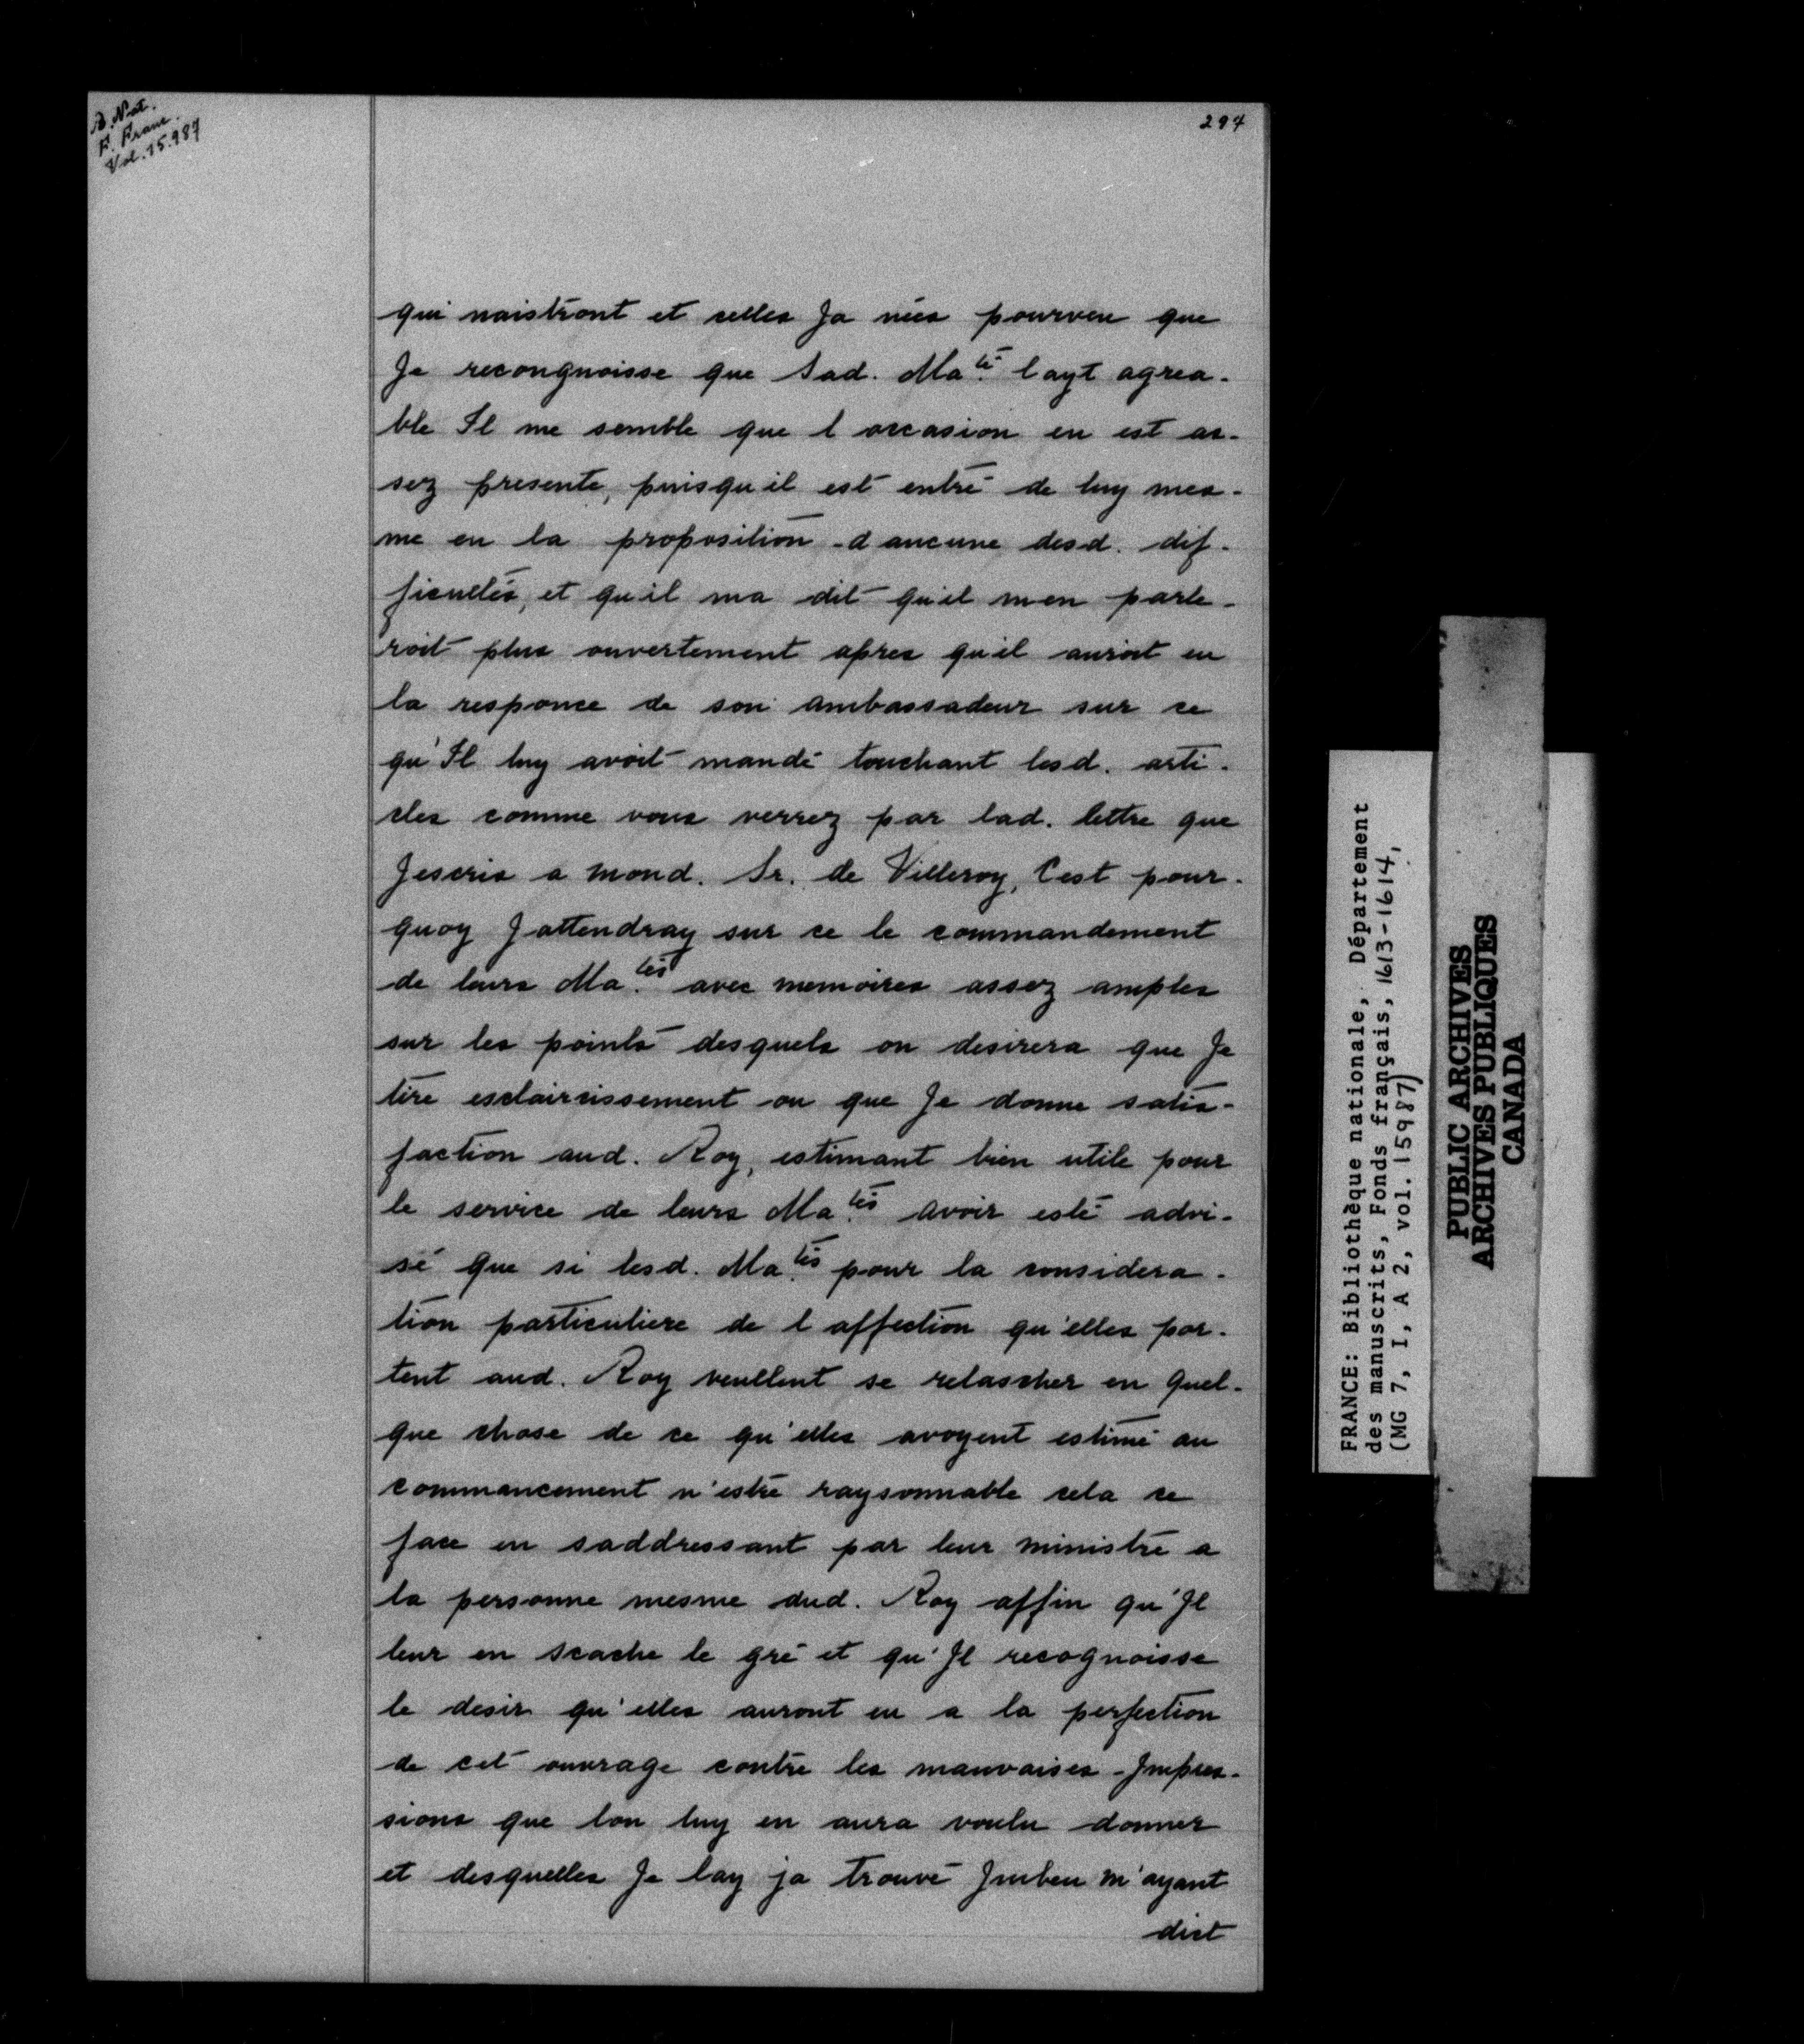 B. Nat.
F. Franc.
Vol. 15.987
294
qui naistront et celles Ja nées pourveu que
Je recongnoisse que Sad. Ma.té layt agrea-
ble Il me semble que l occasion en est as-
sez presente, puisqu il est entré de luy mes-
me en la proposition d aucune desd. dif-
ficultés, et qu il ma dit qu il men parle-
roit plus ouvertement apres qu il auroit eu
la responce de son ambassadeur sur ce
qu'Il luy avoit mandé touchant lesd. arti-
cles comme vous verrez par lad. lettre que
Jescris a mond. Sr. de Villeroy, Cest pour-
quoy Jattendray sur ce le commandement
de leurs Ma.tés avec memoires assez amples
sur les points desquels on desirera que Je
tire esclaircissement ou que Je donne satis-
faction aud. Roy, estimant bien utile pour
le service de leurs Ma.tés avoir esté advi-
sé que si lesd. Ma.tés pour la considera-
tion particuliere de l affection qu'elles por-
tent aud. Roy veullent se relascher en quel-
que chose de ce qu'elles avoyent estimé au
commancement n'estre raysonnable cela se
face en saddressant par leur ministre a
la personne mesme dud. Roy affin qu'Il
leur en scache le gré et qu'Il recognoisse
le desir qu'elles auront eu a la perfection
de cet ouvrage contre les mauvaises Impres-
sions que lon luy en aura voulu donner
et desquelles Je lay ja trouvé Jmbeu m'ayant
dict
FRANCE: Bibliothèque nationale, Département
des manuscrits, Fonds français, 1613-1614,
(MG 7, I, A 2, vol. 15987)
PUBLIC ARCHIVES
ARCHIVES PUBLIQUES
CANADA